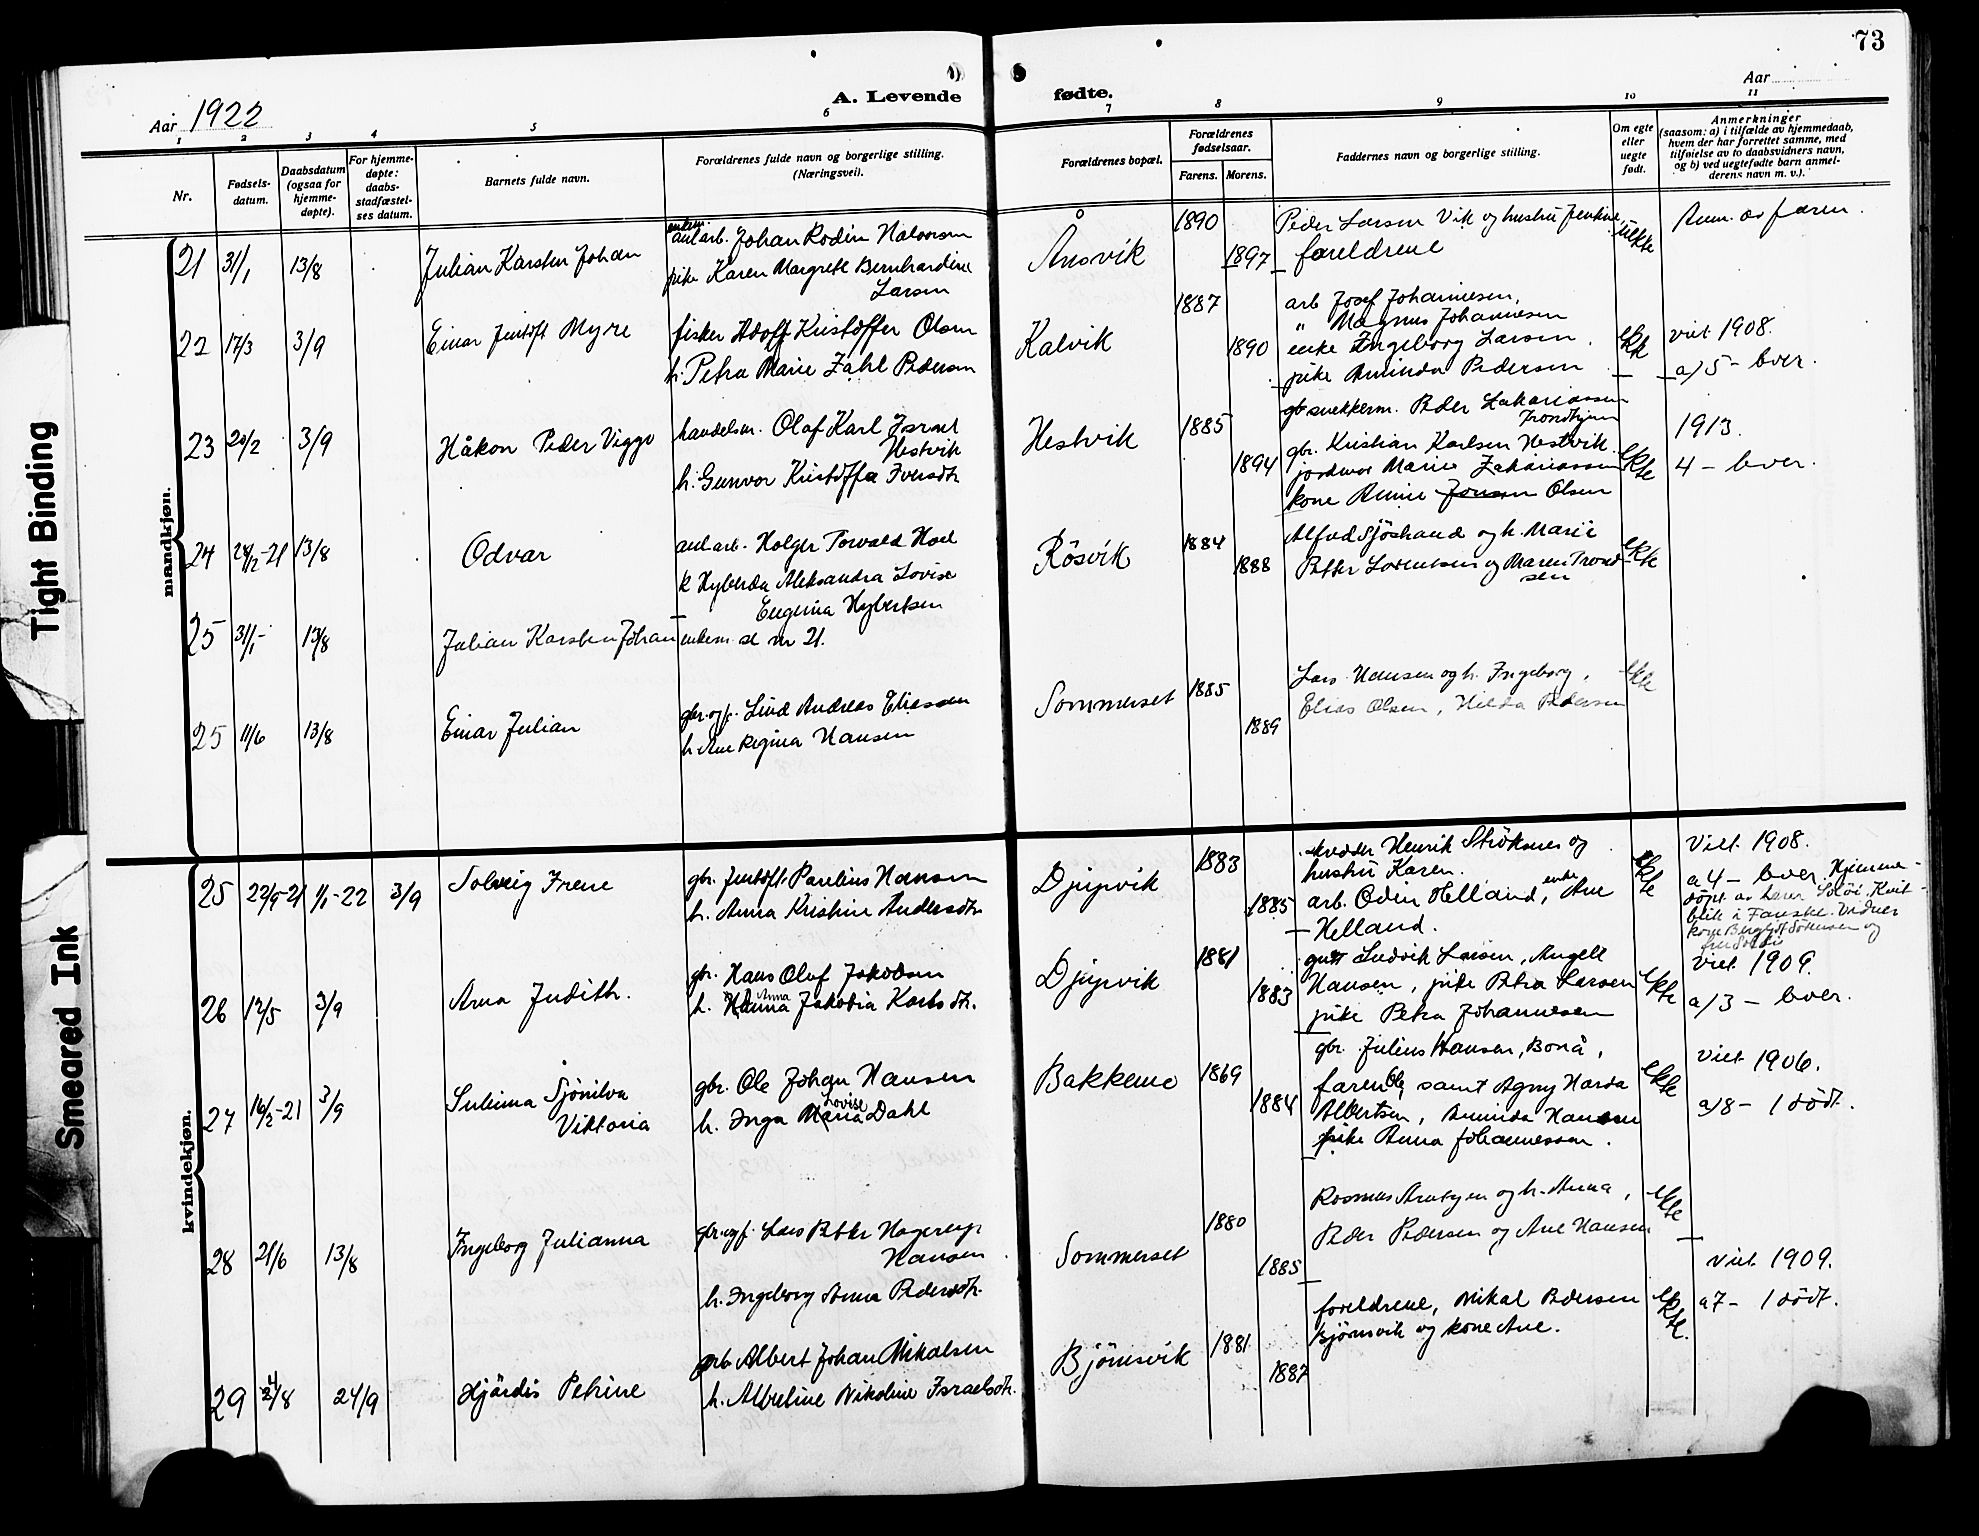 73
Aar 1922
A. Levende
fødte.
Aar
1 2 3 4 5 6 7 8 9 10 11
Nr.
Fødsels-
datum.
Daabsdatum
(ogsaa for
hjemme-
døpte).
For hjemme-
døpte:
daabs-
stadfæstel-
ses datum.
Barnets fulde navn.
Forældrenes fulde navn og borgerlige stilling.
(Næringsvei).
Forældrenes bopæl.
Forældrenes
fødselsaar.
Farens. Morens.
Faddernes navn og borgerlige stilling.
Om egte
eller
uegte
født.
Anmerkninger
(saasom: a) i tilfælde av hjemmedaab,
hvem der har forrettet samme, med
tilføielse av to daabsvidners navn,
og b) ved uegtefødte barn anmel-
derens navn m. v.).
Tight Binding
Smeared Ink
mandkjøn.
21 31/1 13/8 Julian Karsten Johan
anl.arb. Johan Rodin Halvorsen
pike Karen Margrete Bernhardine
Larsen
Ånsvik 1890 1897
Peder Larsen Vik og hustru Jentine,
foreldrene
uekte
Anm. av faren.
22 17/3 3/9 Einar Jentoft Myre
fisker Adolf Kristoffer Olsen
h. Petra Marie Zahl Pedersen
Kalvik 1887 1890
arb Josef Johannesen,
" Magnus Johannesen
enke Ingeborg Larsen.
pike Aminda Pedersen
ekte
viet 1908.
a/5 - lever.
23 20/2 3/9 Håkon Peder Viggo
handelsm. Olaf Karl Israel
Hestvik
h. Gunvor Kristoffa Iversdtr
Hestvik 1885 1894
gb snekkerm. Peder Zakariassen
Trondhjem
gbr. Kristian Karlsen Hestvik.
jordmor Marie Zakariassen
kone Annie Jensen Olsen
ekte
1913.
4 - lever.
24 24/2-21 13/8 Odvar
anl arb. Holger Torvald Hoel
k Hyberda Aleksandra Lovise
Eugenia Hybertsen
Rösvik 1884 1888
Alfred Sjöstrand og h. Marie
Petter Lorentsen og Maren Trond-
sen
ekte
25 31/1- 13/8 Julian Karsten Johan
se nr 21.
25 11/6 13/8 Einar Julian
gbr. og f. Lind Andreas Eliassen
h Ane Regina Hansen
Sommerset 1885 1889
Lars Hansen og h. Ingeborg,
Elias Olsen, Hilda Pedersen
ekte
kvindekjøn.
25 22/9-21 1/1-22 3/9 Solveig Irene
gbr. Jentoft Paulius Hansen
h. Anna Kristine Andersdtr.
Djupvik 1883 1885
skredder Henrik Ströksnes og
hustru Karen.
arb. Odin Helland, enke Ane
Helland.
ekte
Viet 1908.
a 4 - lever. Hjemme-
döpt av lærer Solöi, Kvit-
blik i Fauske. Vidner
kone Bergljot Sörensen og
fru Solöi
26 12/5 3/9 Arna Judith.
gbr. Hans Olaf Jakobsen
h. Hanna Anna Jakobia Karlsdtr.
Djupvik 1881 1883
gutt Ludvik Larsen, Angell
Hansen, pike Petra Larsen
pike Petra Johannesen
ekte
viet 1909.
a/3 - lever.
27 16/2-21 3/9 Sulima Sjönilva
Viktoria
gbr. Ole Johan Hansen
h. Inga Maria Lovise Dahl
Bakkemo 1869 1884
gbr. Julius Hansen, Bonå,
faren Ole, samt Agny Harda
Albertsen, Aminda Hansen
pike Anna Johannessen.
ekte
viet 1906.
a/8 - 1 död.
28 21/6 13/8 Ingeborg Julianna
gbr. og f. Lars Petter Hagerup
Hansen
h. Ingeborg Anna Pedersdtr.
Sommerset 1880 1885
Rasmus Arntzen og h. Anna,
Peder Pedersen og Ane Hansen
ekte
29 24/8 24/9 Hjördis Petrine
arb Albert Johan Mikalsen
h. Albertine Nikoline Israelsdtr.
Björnsvik 1881 1887
foreldrene, Mikal Pedersen
Björnsvik og kone Ane.
ekte.
viet 1909.
a 7 - 1 död.